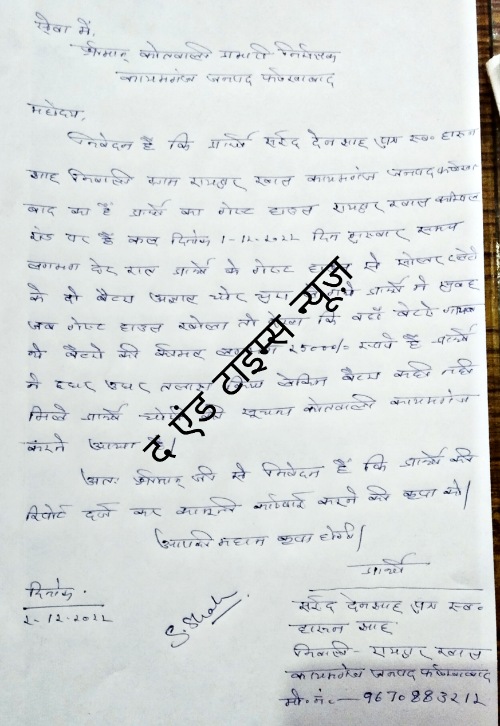 सेवा में,
श्रीमान् कोतवाली प्रभारी निरीक्षक
कायमगंज जनपद फर्रुखाबाद
महोदय,
निवेदन है कि प्रार्थी सईद देनशाह पुत्र स्व० हारून
शाह निवासी ग्राम रायपुर खास कायमगंज जनपद फर्रुखा
बाद का है प्रार्थी का गेस्ट हाउस रायपुर खास
रोड पर है कल दिनांक 1-12-2022 दिन गुरुवार समय
लगभग देर रात प्रार्थी के गेस्ट हाउस से सोलर प्लेटो
के दो बैटरा अज्ञात चोर चुरा प्रार्थी ने सुबह
जब गेस्ट हाउस खोला तो कि वहाँ बैटरे गायब
थे बैटरो की कीमत 25000/= रुपये है प्रार्थी
ने इधर उधर तलाश किया लेकिन बैटरा कही नही
मिले प्रार्थी चोरी की सूचना कोतवाली कायमगंज
करने आया है।
अतः श्रीमान् जी से निवेदन है कि प्रार्थी की
रिपोर्ट दर्ज कर कानूनी कार्यवाई करने की कृपा करे।
आपकी महान कृपा होगी।
प्रार्थी
सईद देनशाह पुत्र स्व०
हारून शाह
निवासी - रायपुर खास
कायमगंज जनपद फर्रुखाबाद
मो० नं० - 9670883212
दिनांक.
2-12-2022
S. Shah
द एंड टाइम्स न्यूज